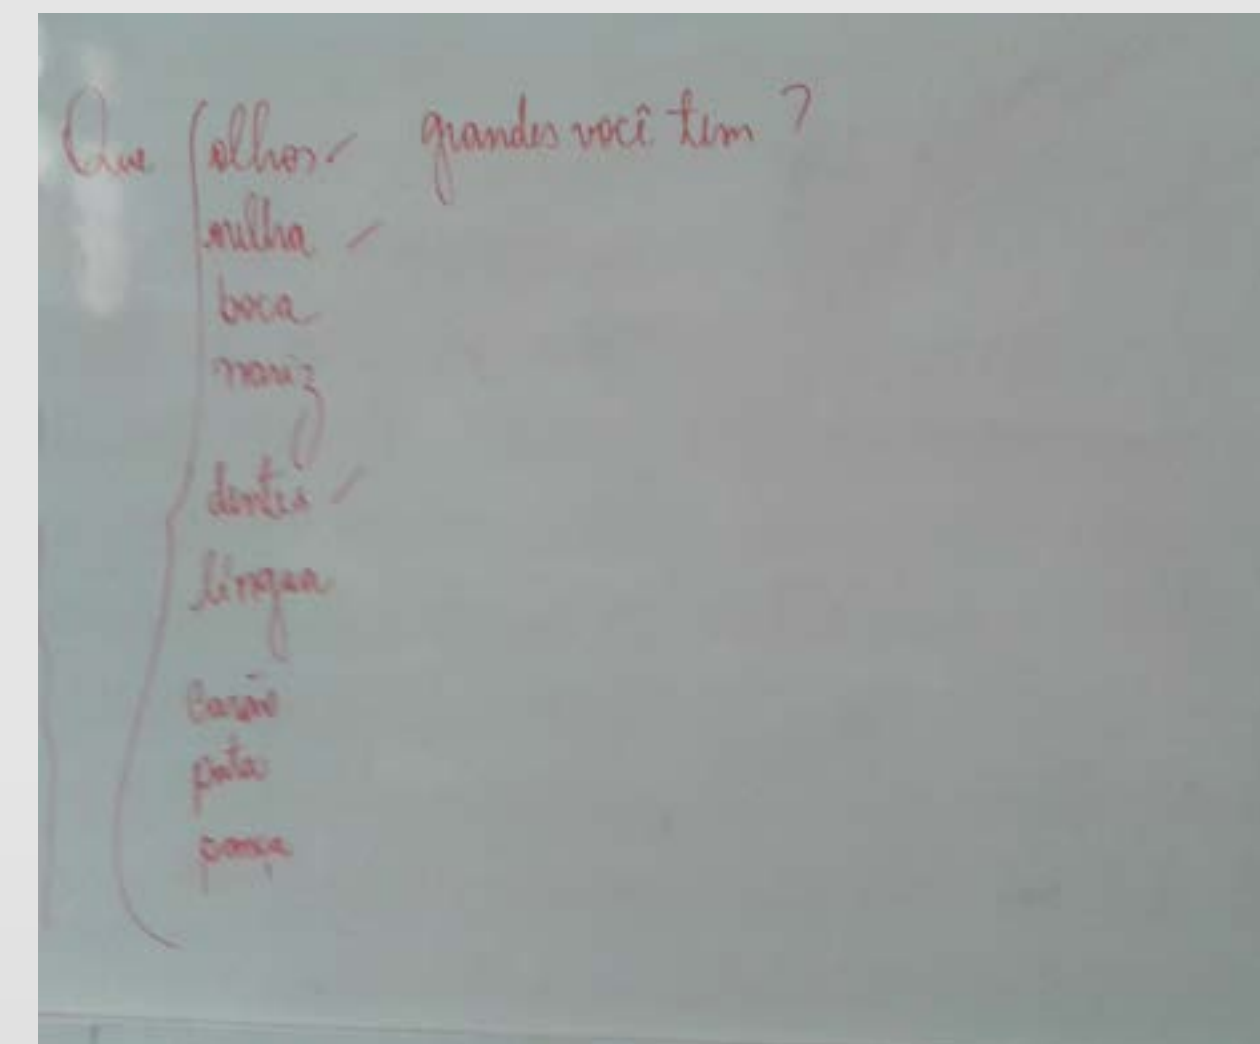 Que olhos grandes você tem ?
orelha
boca
nariz
dentes
língua
pata
pança